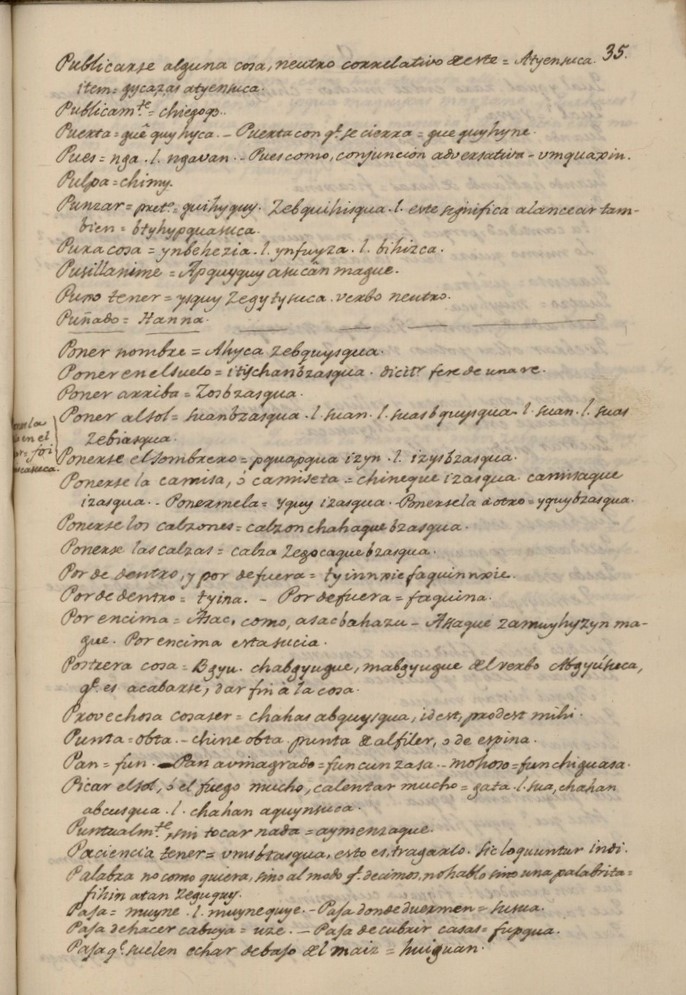 35.
Publicarse alguna cosa, neutro correlativo de este = Atyensuca.
item = gycazas atyensuca.
Publicam.te = chiegogo.
Puerta = guê quyhyca. - Puerta con q.e se cierra = gue quyhyne.
Pues = nga . l. ngavan. - Pues como, conjunción adversativa - vmquaxin.
Pulpa = chimy.
Punzar = pret.o = quihyquy. Zebquihisqua . l. este significa alancear tam-
bien = btyhypquasuca.
Pura cosa = ynbehezia . l. ynfuyza . l. bihizca.
Pusillanime = Apquyquy asucan mague.
Puxo tener = ysquy zegytysuca . verbo neutro.
Puñado = Hanna.
Poner nombre = Ahyca zebquysqua.
Poner en el suelo = itischanbzasqua . dicit.r fere de una re.
Poner arriba = Zosbzasqua.
Poner al sol = suanbzasqua . l. suan . l. suasbquysqua . l. suan . l. suas
zebiasqua.
Ponerse el sombrero = pquapqua izyn . l. izysbzasqua.
Ponerse la camisa, ó camiseta = chineque izasqua. camisaque
izasqua. - Ponermela = yquy izasqua - Ponersela à otro = yquybzasqua.
Ponerse los calzones = calzon chahaque bzasqua.
Ponerse las calzas = calza zegocaquebzasqua.
Por de dentro, y por de fuera = tyinnxie faquinnxie.
Por de dentro = tyina. - Por de fuera = faquina.
Por encima = Asac, como, asacbahazu - Asaque zamuyhyzyn ma-
gue. Por encima esta sucia.
Postrera cosa = Bgyu. chabgyugue, mabgyugue del verbo Abgyúsuca,
q.e es acabarse, dar fin à la cosa.
Provechosa cosa ser = chahas abquysqua, id est, prodest mihi.
Punta = obta. - chine obta punta de alfiler, o de espina.
Pan = fun. - Pan avinagrado = funcunzasa. - mohoso = funchiguasa.
Picar el sol, ó el fuego mucho, calentar mucho = gata . l. sua, chahan
abcusqua . l. chahan aquynsuca.
Puntualm.te, sin tocar nada = aymenzaque.
Paciencia tener = vmsbtasqua, esto es, tragarlo. sic loquuntur indi.
Palabra no como quiera, sino al modo q.e decimos, no hablo sino una palabrita =
fihin atan zeguquy.
Paja = muyne . l. muynequye. - Paja donde duermen = susua.
Paja de hacer cabuya = uze. - Paja de cubrir casas = fupqua.
Paja q.e suelen echar debajo del maiz = huiguan.